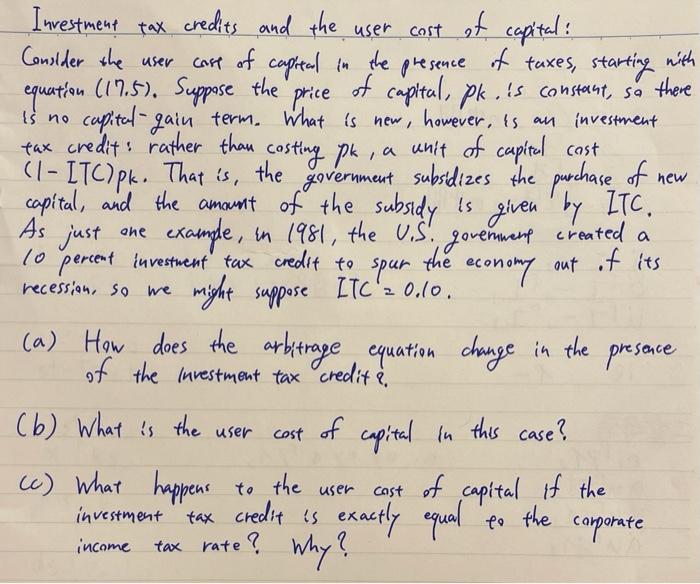 Investment tax credits and the user cost of capital:
Consider the user cost of capital in the presence of taxes, starting with
equation (17.5). Suppose the price of capital, pk. is constant, so there
is no capital-gain term. What is new, however, is an investment
tax credit: rather than costing pk, a unit of capital cost
(1-ITC)pk. That is, the government subsidizes the purchase of new
capital, and the amount of the subsidy is given by ITC.
As just one example, in 1981, the U.S. government created a
10 percent investment tax credit to spur the economy out of its
recession, so we might suppose ITC = 0.10.
(a) How does the arbitrage equation change in the presence
of the investment tax credit?
(b) What is the user cost of capital in this case?
(c) What happens to the user cost of capital if the
investment tax credit is exactly equal to the corporate
income tax rate? Why?